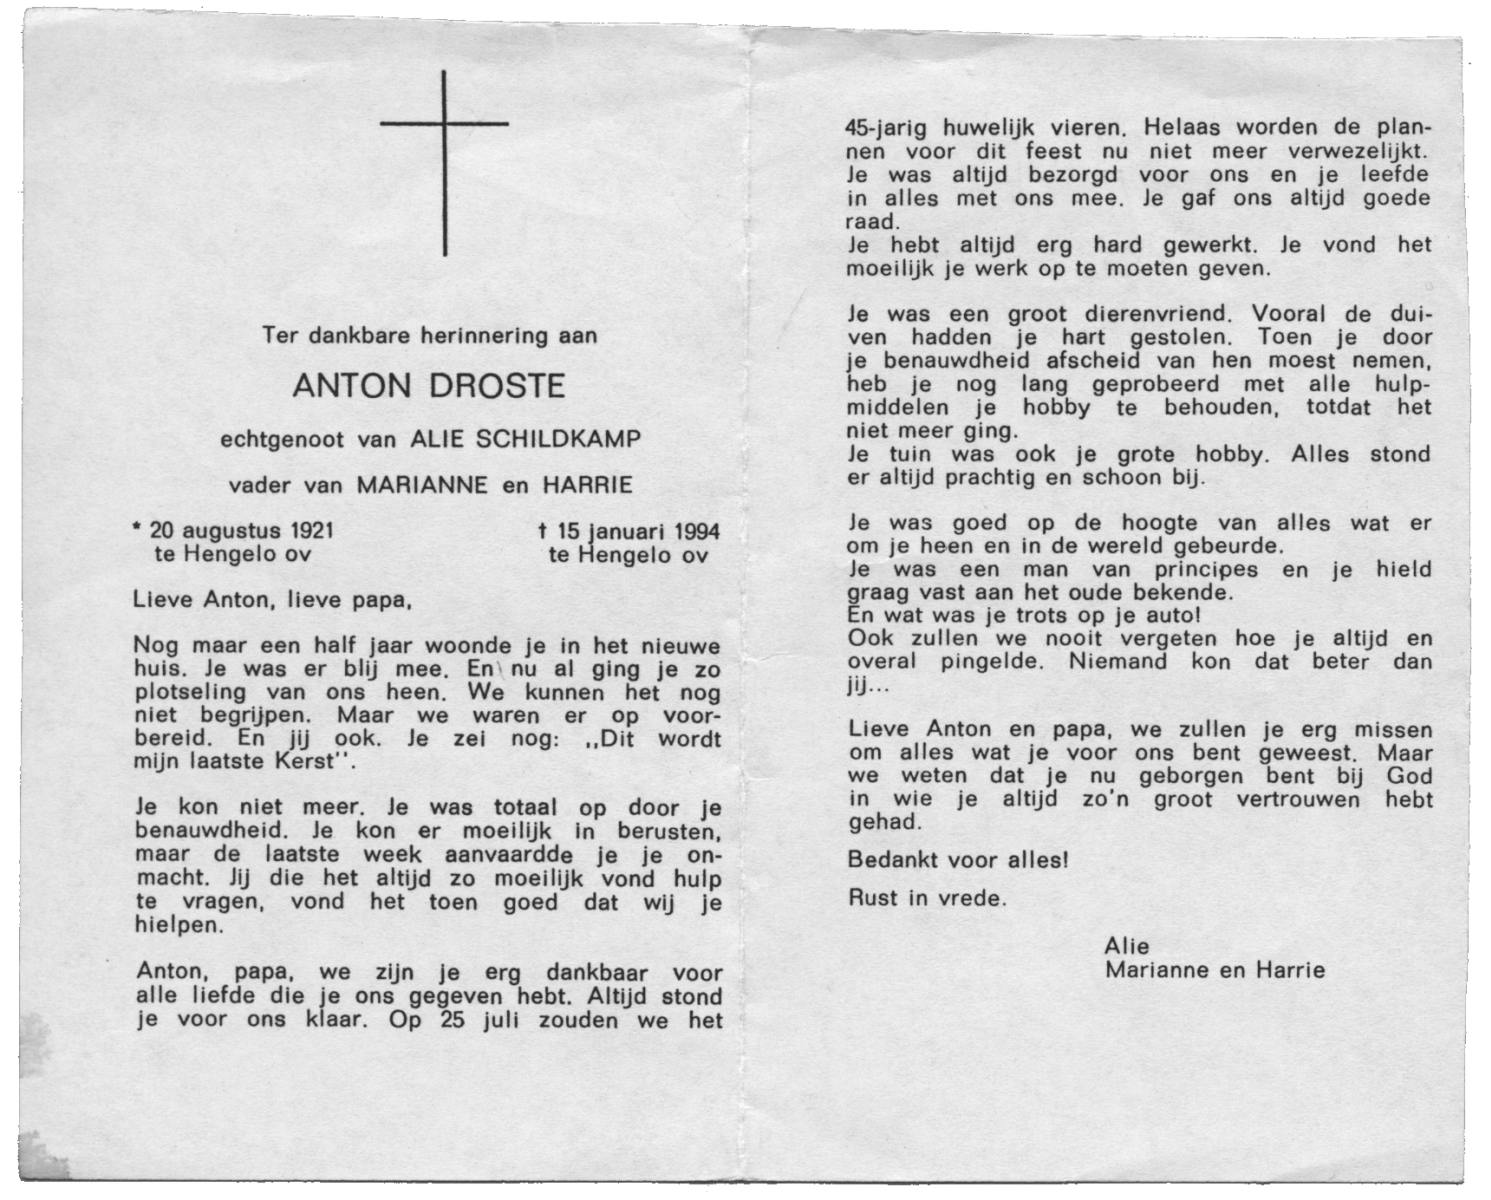 Ter dankbare herinnering aan
ANTON DROSTE
echtgenoot van ALIE SCHILDKAMP
vader van MARIANNE en HARRIE
* 20 augustus 1921
te Hengelo ov
† 15 januari 1994
te Hengelo ov
Lieve Anton, lieve papa,
Nog maar een half jaar woonde je in het nieuwe
huis. Je was er blij mee. En nu al ging je zo
plotseling van ons heen. We kunnen het nog
niet begrijpen. Maar we waren er op voor-
bereid. En jij ook. Je zei nog: ,,Dit wordt
mijn laatste Kerst''.
Je kon niet meer. Je was totaal op door je
benauwdheid. Je kon er moeilijk in berusten,
maar de laatste week aanvaardde je je on-
macht. Jij die het altijd zo moeilijk vond hulp
te vragen, vond het toen goed dat wij je
hielpen.
Anton, papa, we zijn je erg dankbaar voor
alle liefde die je ons gegeven hebt. Altijd stond
je voor ons klaar. Op 25 juli zouden we het
45-jarig huwelijk vieren. Helaas worden de plan-
nen voor dit feest nu niet meer verwezelijkt.
Je was altijd bezorgd voor ons en je leefde
in alles met ons mee. Je gaf ons altijd goede
raad.
Je hebt altijd erg hard gewerkt. Je vond het
moeilijk je werk op te moeten geven.
Je was een groot dierenvriend. Vooral de dui-
ven hadden je hart gestolen. Toen je door
je benauwdheid afscheid van hen moest nemen,
heb je nog lang geprobeerd met alle hulp-
middelen je hobby te behouden, totdat het
niet meer ging.
Je tuin was ook je grote hobby. Alles stond
er altijd prachtig en schoon bij.
Je was goed op de hoogte van alles wat er
om je heen en in de wereld gebeurde.
Je was een man van principes en je hield
graag vast aan het oude bekende.
En wat was je trots op je auto!
Ook zullen we nooit vergeten hoe je altijd en
overal pingelde. Niemand kon dat beter dan
jij...
Lieve Anton en papa, we zullen je erg missen
om alles wat je voor ons bent geweest. Maar
we weten dat je nu geborgen bent bij God
in wie je altijd zo'n groot vertrouwen hebt
gehad.
Bedankt voor alles!
Rust in vrede.
Alie
Marianne en Harrie